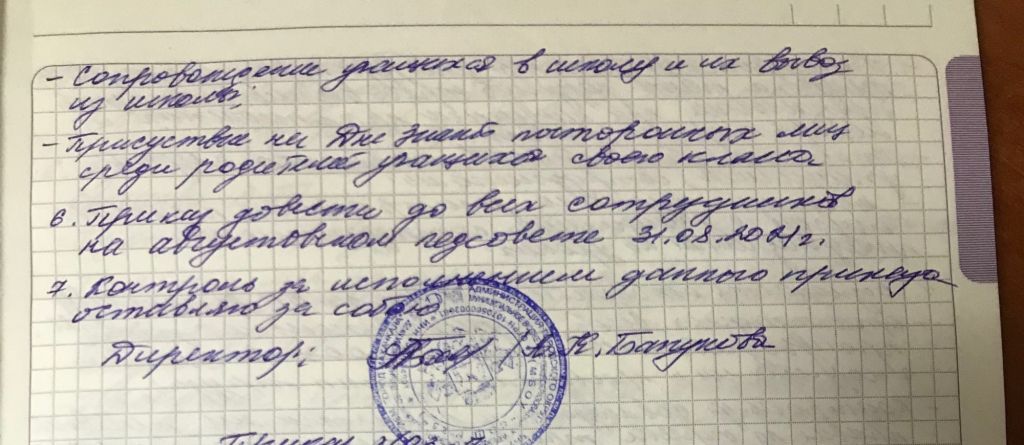 - Сопровождение учащихся в школу и их вывоз
из школы;
- Присуствие на Дне Знаний посторонних лиц
среди родителей учащихся своего класса
6. Приказ довести до всех сотрудников
на августовском педсовете 31.08.2021г.
7. Контроль за исполнением данного приказа
оставляю за собою
Директор: К.
Приказ